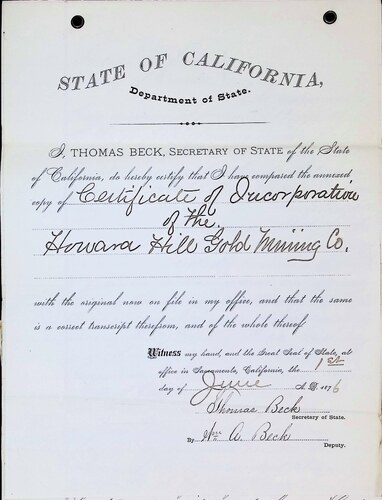 STATE OF CALIFORNIA,
Department of State.
I, THOMAS BECK, SECRETARY OF STATE of the State
of California, do hereby certify that I have compared the annexed
copy of Certificate of Incorporation
of the
Howard Hill Gold Mining Co.
with the original now on file in my office, and that the same
is a correct transcript therefrom, and of the whole thereof
Witness my hand, and the Great Seal of State, at
office in Sacramento, California, the 1st
day of June A. D. 1876
Thomas Beck
Secretary of State.
By Wm A. Beck
Deputy.